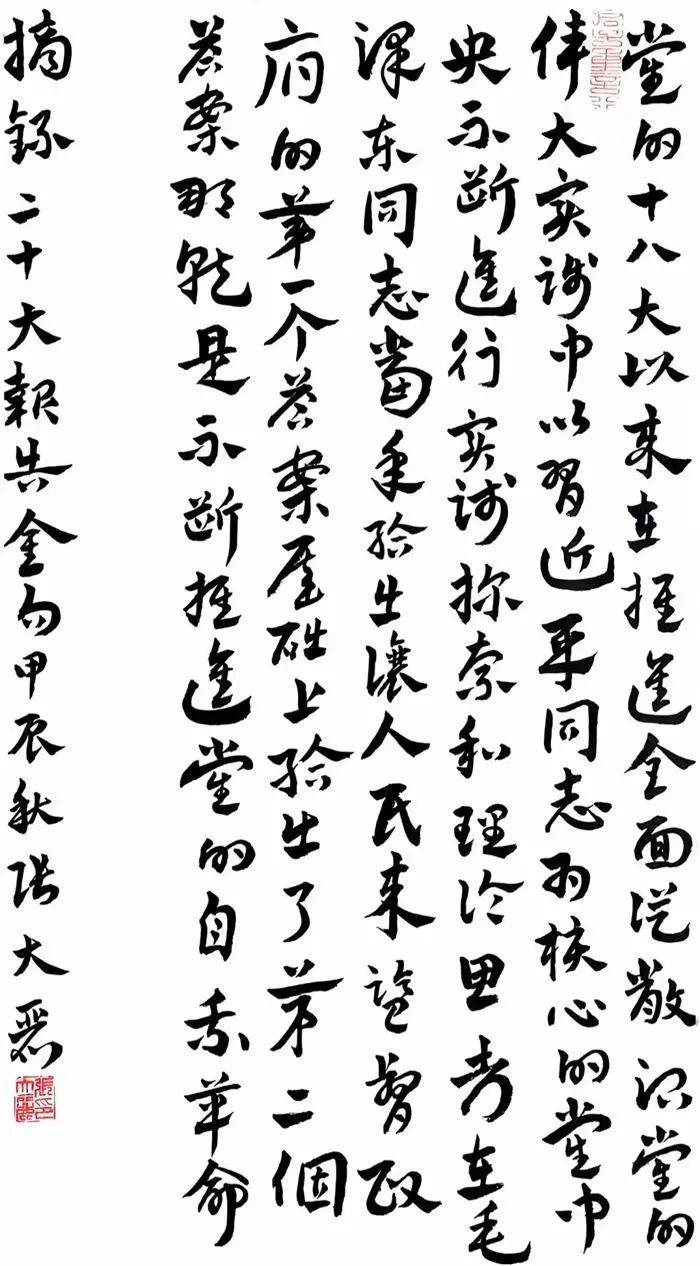 黨的十八大以来在推進全面從嚴治黨的
偉大实踐中以習近平同志为核心的黨中
央不断進行实踐探索和理论思考在毛
泽东同志當年给出讓人民来監督政
府的第一个答案基础上给出了第二個
答案那就是不断推進黨的自我革命
摘錄二十大報告金句甲辰秋张大